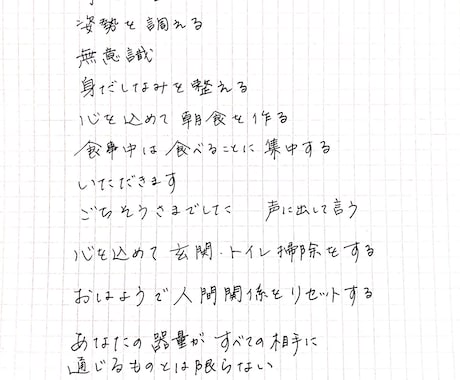 姿勢を調える
無意識
身だしなみを整える
心を込めて朝食を作る
食事中は食べることに集中する
いただきます
ごちそうさまでした 声に出して言う
心を込めて玄関・トイレ掃除をする
おはようで人間関係をリセットする
あなたの器量がすべての相手に
通じるものとは限らない